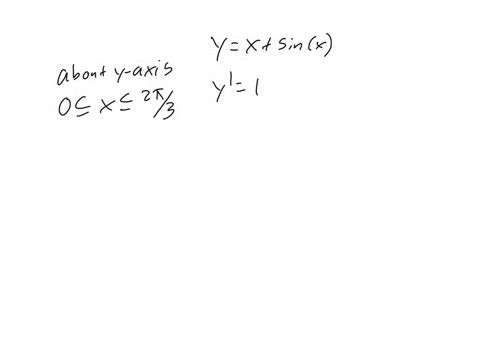 y = x + sin(x)
about y-axis
y' = 1
0 ≤ x ≤ 2π/3